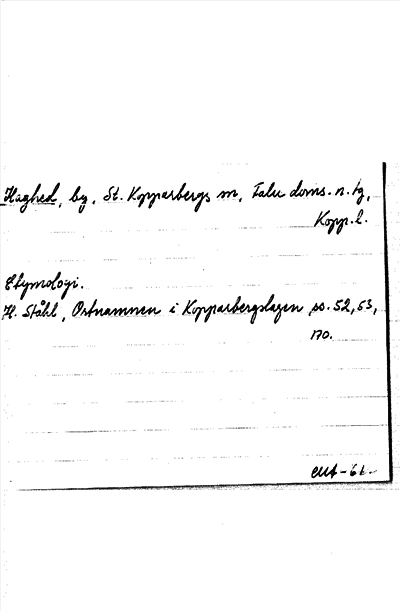 Haghed, by, St. Kopparbergs sn, Falu doms. n. tg,
Kopp. l.
Etymologi.
H. Ståhl, Ortnamnen i Kopparbergslagen, ss. 52, 53,
170.